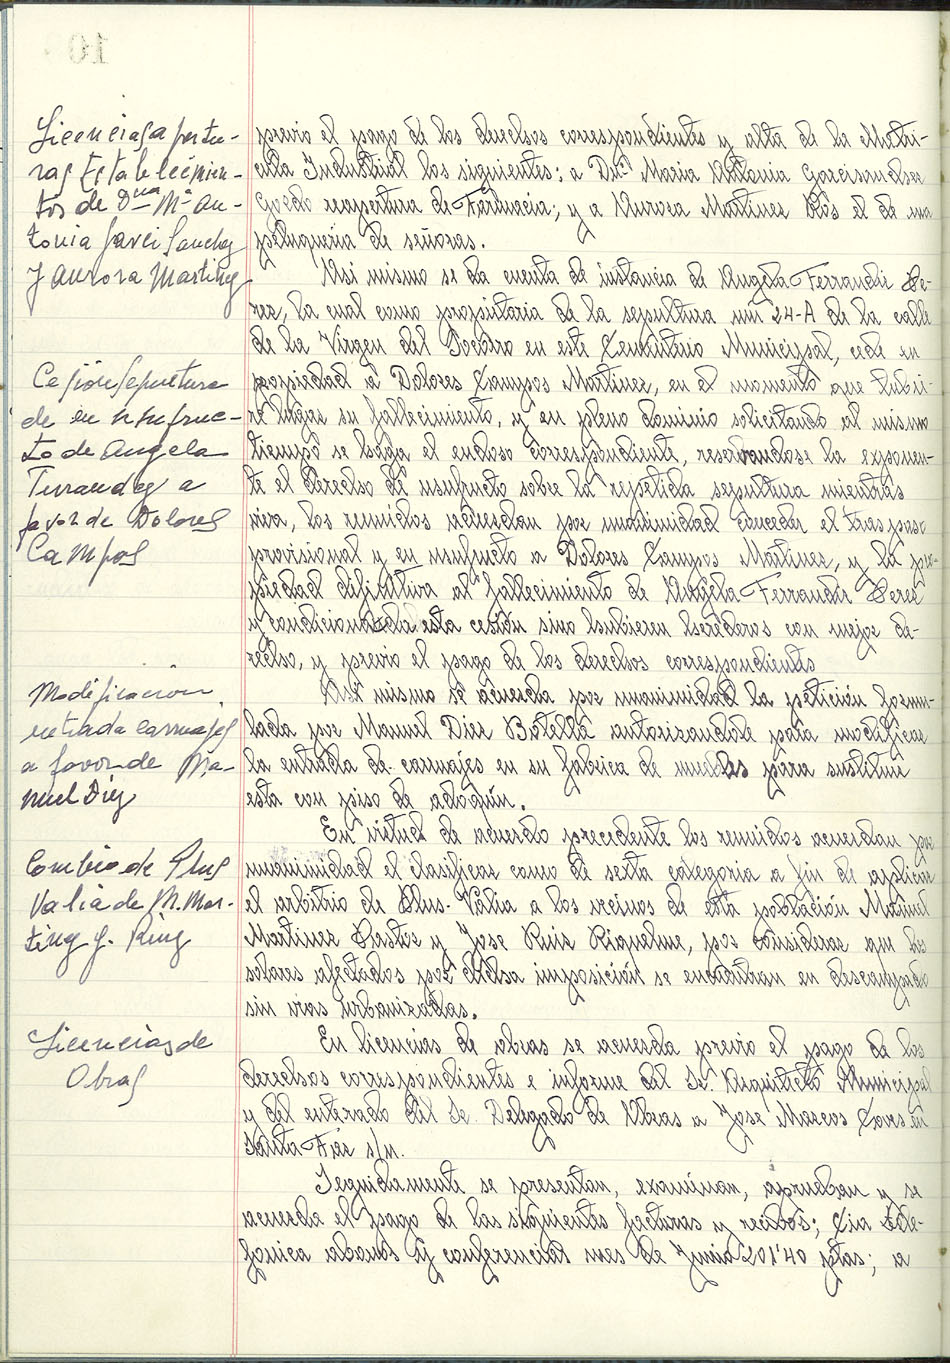 Licencias apertu-
ras Establecimien-
tos de Dna Mª An-
tonia Garci Sanchez
y Aurora Martinez
previo el pago de los derechos correspondientes y alta de la Matri-
cula Industrial los siguientes: a Dnª Maria Antonia
reapertura de Farmacia; y a Aurora Martinez el de una
peluqueria de señoras.
Asi mismo se da cuenta de instancia de Angela Ferrandiz Pe-
rez, la cual como propietaria de la sepultura num 24-A de la calle
de la Virgen del Socorro en este Cementerio Municipal, cede en
Cesion sepultura
de en usufruc-
to de Angela
Ferrandez a
favor de Dolores
Campos
propiedad a Dolores Campos Martinez, en el momento que tubie-
re lugar su fallecimiento, y en pleno dominio solicitando al mismo
tiempo se haga el endoso correspondiente, reservandose la exponen-
te el derecho de usufructo sobre la repetida sepultura mientras
viva, los reunidos acuerdan por unanimidad conceder el traspaso
provisional y en usufructo a Dolores Campos Martinez, y la pro-
piedad difinitiva al fallecimiento de Angela Ferrandiz Perez
y condicionada esta cesión sino hubieren herederos con mejor de-
recho, y previo el pago de los derechos correspondientes
Modificacion
entrada carruajes
a favor de Ma-
nuel Diez
Asi mismo se acuerda por unanimidad la petición formu-
lada por Manuel Diez Botella autorizandole para modificar
la entrada de carruajes en su fabrica de muebles para sustituir
esta con piso de adoquin.
En virtud de acuerdo precedente los reunidos acuerdan por
Combio de Plus
Valia de M. Mar-
tinez y J. Ruiz
unanimidad el clasificar como de sexta categoria a fin de aplicar
el arbitrio de Plus-Valia a los vecinos de esta población Manuel
Martinez Pastor y Jose Ruiz Riquelme, por considerar que los
solares afectados por dicha imposición se encuentran en descampado
sin vias urbanizadas.
Licencias de
Obras
En licencias de obras se acuerda previo el pago de los
derechos correspondientes e informe del Sr. Arquitecto Municipal
y del enterado del Sr. Delegado de Obras a Jose Marcos en
Santa Faz s/n.
Seguidamente se presentan, examinan, aprueban y se
acuerda el pago de las siguientes facturas y recibos; Cia Tele-
fonica abonos y conferencias mes de Junio 201'40 ptas; a